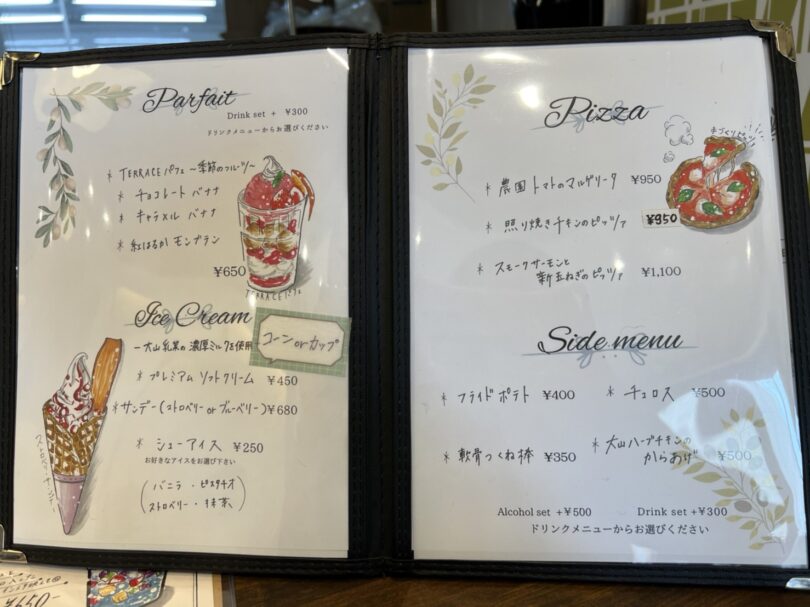 Parfait
Drink set + ¥300
ドリンクメニューからお選びください
* TERRACEパフェ 〜季節のフルーツ〜
* チョコレート バナナ
* キャラメル バナナ
* 紅はるか モンブラン
¥650
TERRACEパフェ
Ice Cream
コーン or カップ
ー大山乳業の濃厚ミルクを使用ー
* プレミアム ソフトクリーム ¥450
* サンデー(ストロベリー or ブルーベリー) ¥680
* シューアイス ¥250
お好きなアイスをお選び下さい
(バニラ・ピスタチオ
ストロベリー・抹茶)
Pizza
* 農園トマトのマルゲリータ ¥950
* 照り焼きチキンのピッツァ ¥950
* スモークサーモンと
新玉ねぎのピッツァ ¥1,100
Side menu
* フライドポテト ¥400
* チュロス ¥500
* 軟骨つくね棒 ¥350
* 大山ハーブチキンの
からあげ ¥500
Alcohol set +¥500
Drink set +¥300
ドリンクメニューからお選びください